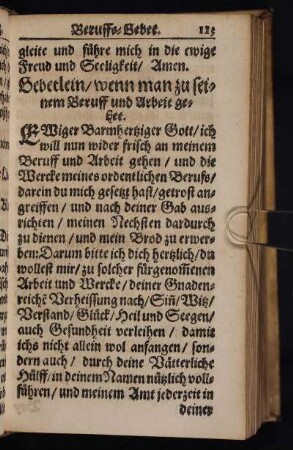 Beruffs-Gebet. 123
gleite und führe mich in die ewige
Freud und Seeligkeit/ Amen.
Gebetlein/ wenn man zu sei-
nem Beruff und Arbeit ge-
het.
EWiger Barmhertziger Gott/ ich
will nun wider frisch an meinem
Beruff und Arbeit gehen/ und die
Wercke meines ordentlichen Berufs/
darein du mich gesetzt hast/ getrost an-
greiffen/ und nach deiner Gab aus-
richten/ meinen Nechsten dardurch
zu dienen/ und mein Brod zu erwer-
ben: Darum bitte ich dich hertzlich/ du
wollest mir/ zu solcher fürgenom̃enen
Arbeit und Wercke/ deiner Gnaden-
reichẽ Verheissung nach/ Siñ/ Witz/
Verstand/ Glück/ Heil und Seegen/
auch Gesundheit verleihen/ damit
ichs nicht allein wol anfangen/ son-
dern auch/ durch deine Vätterliche
Hülff/ in deinem Namen nützlich voll-
führen/ und meinem Amt jederzeit in
deiner